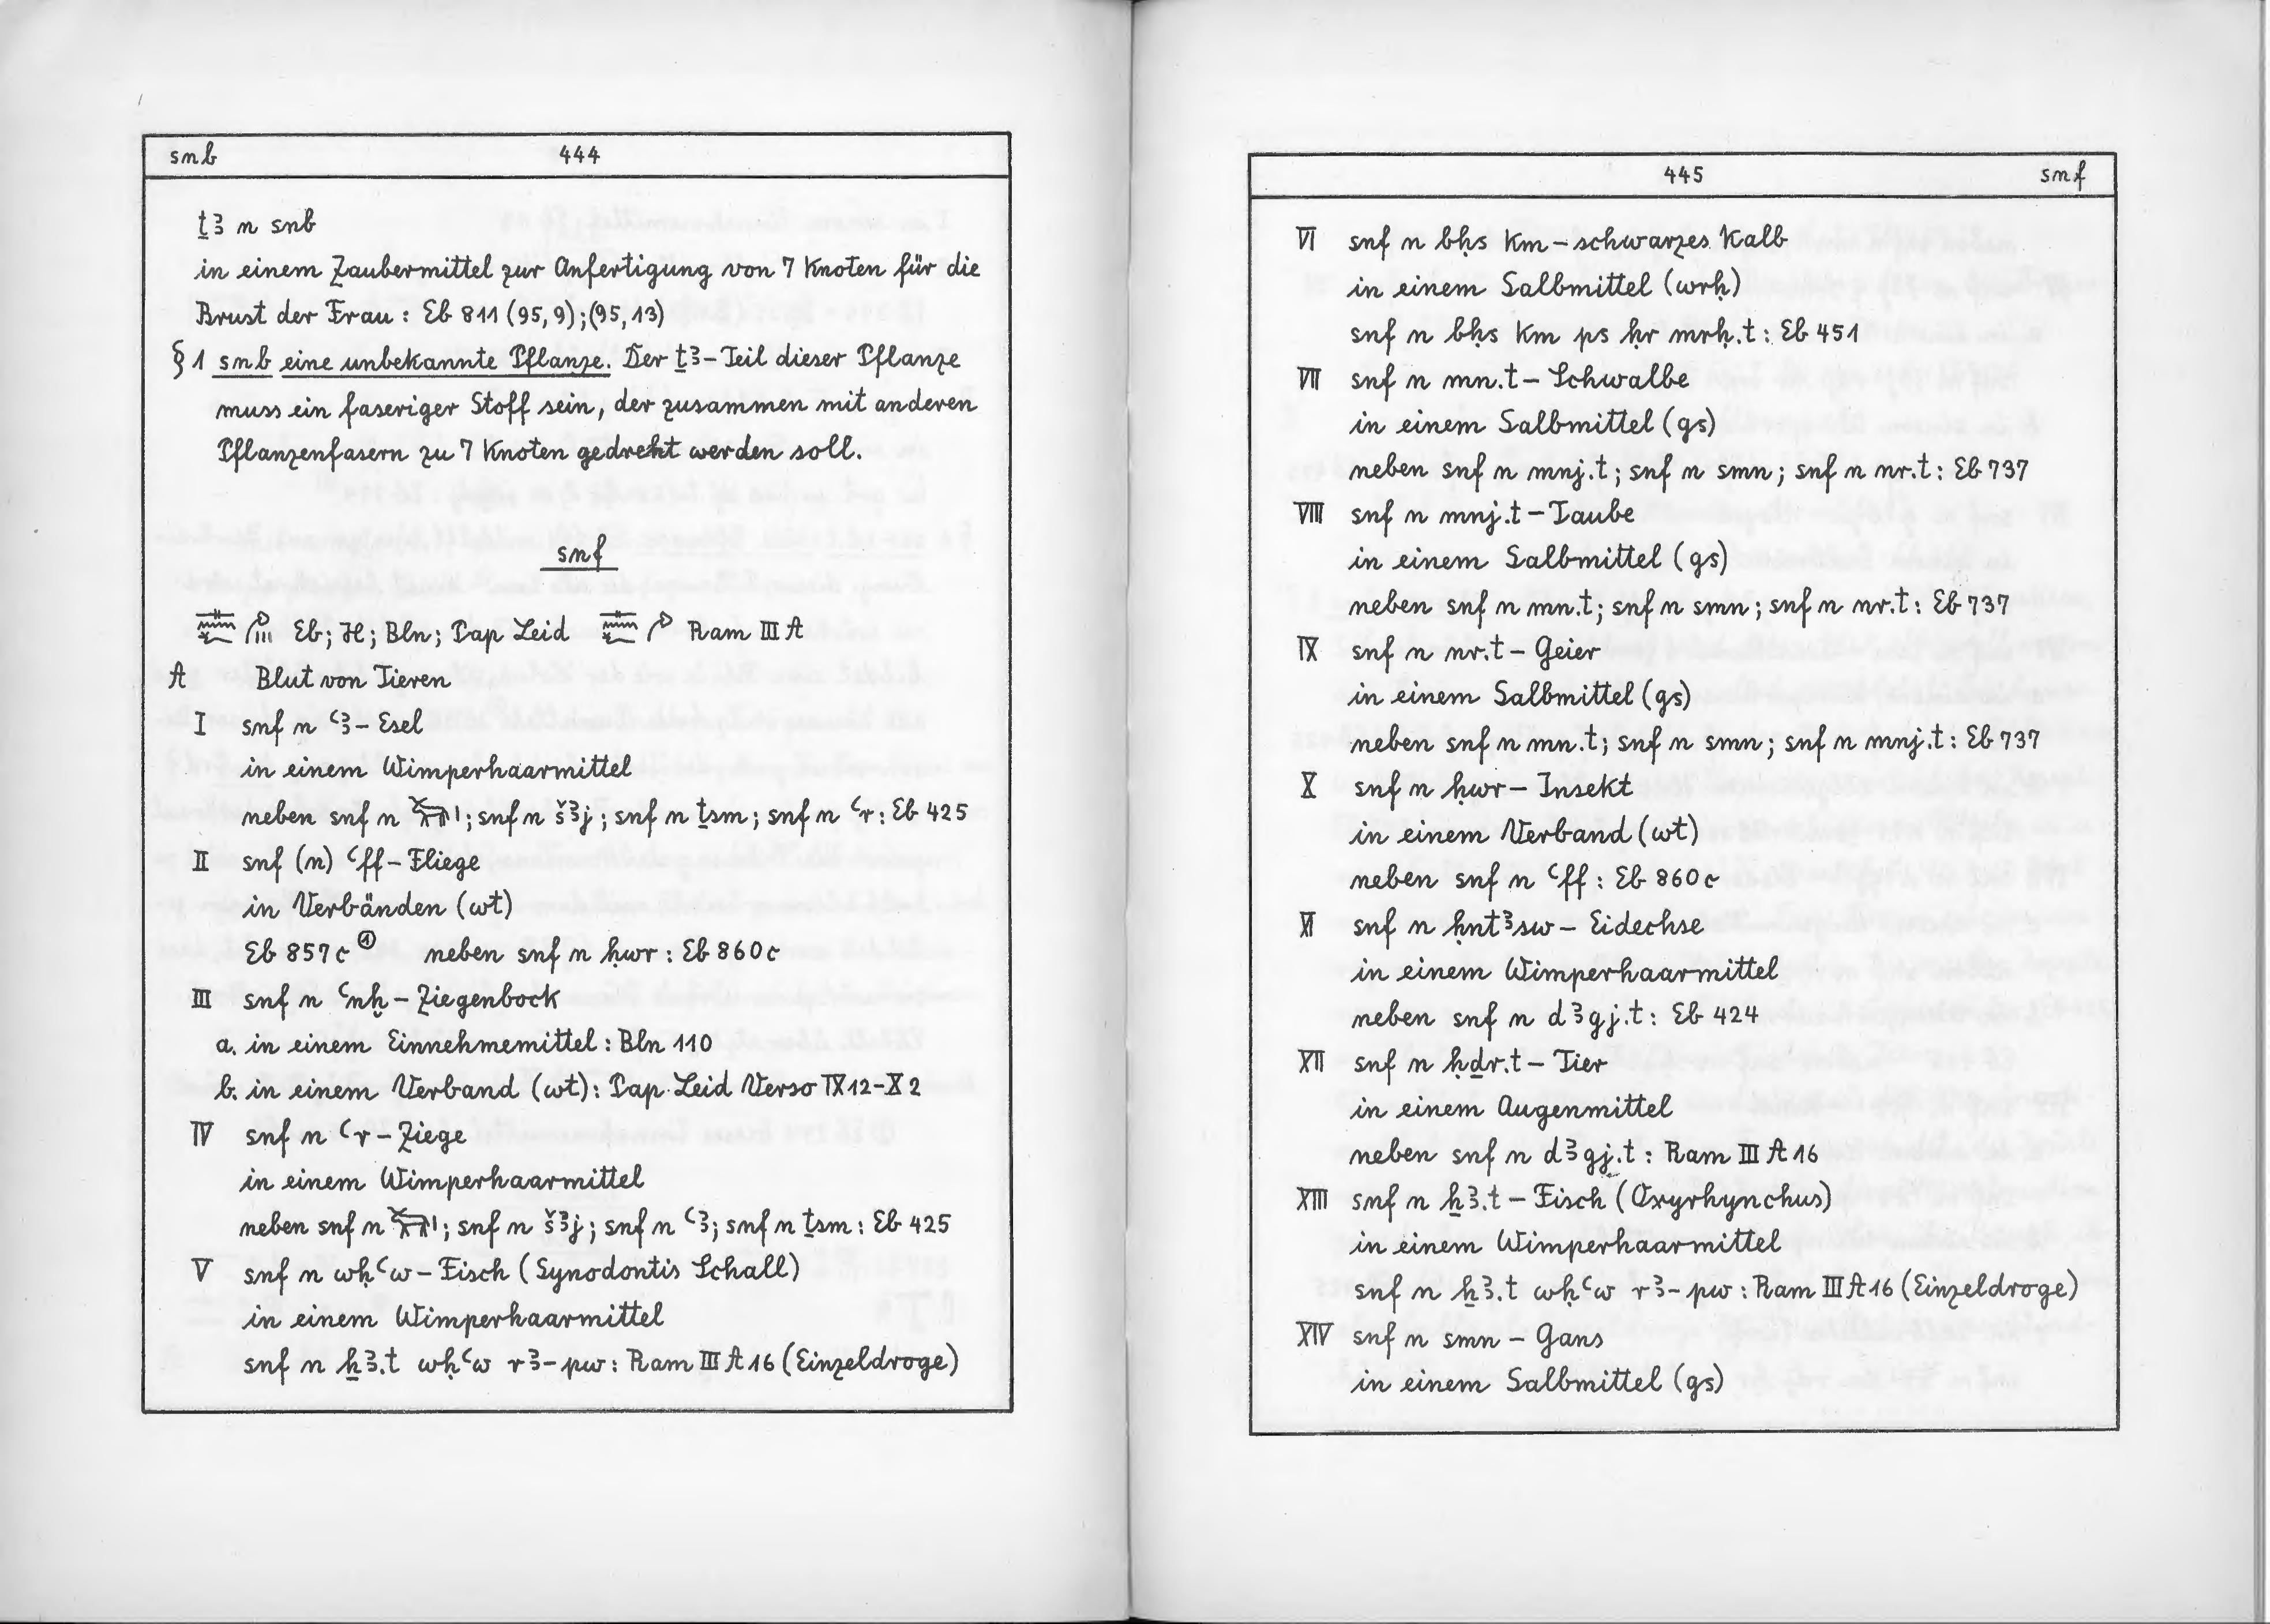 smb 444
ṯꜣ n snb
in einem Zaubermittel zur Anfertigung von 7 Knoten für die
Brust der Frau : Eb 811 (95,9);(95,13)
§ 1 smb eine unbekannte Pflanze. Der ṯꜣ-Teil dieser Pflanze
muss ein faseriger Stoff sein, der zusammen mit anderen
Pflanzenfasern zu 7 Knoten gedreht werden soll.
snf
Eb; H; Bln; Pap Leid Ram III A
A Blut von Tieren
I snf n ꜥꜣ – Esel
in einem Wimperhaarmittel
neben snf n ; snf n šꜣj ; snf n ṯsm ; snf n ꜥr : Eb 425
II snf (n) ꜥff – Fliege
in Verbänden (wt)
Eb 857c ① neben snf n ḥwr : Eb 860c
III snf n ꜥnḫ – Ziegenbock
a. in einem Einnehmemittel : Bln 110
b. in einem Verband (wt) : Pap Leid Verso IX 12–X 2
IV snf n ꜥr – Ziege
in einem Wimperhaarmittel
neben snf n ; snf n šꜣj ; snf n ꜥꜣ; snf n ṯsm : Eb 425
V snf n wḥꜥw – Fisch (Synodontis Schall)
in einem Wimperhaarmittel
snf n ẖꜣ.t wḥꜥw rꜣ-pw : Ram III A 16 (Einzeldroge)
445 smf
VI snf n bḥs km – schwarzes Kalb
in einem Salbmittel (wrḥ)
snf n bḥs km ps ḥr mrḥ.t : Eb 451
VII snf n mn.t – Schwalbe
in einem Salbmittel (gs)
neben snf n mnj.t ; snf n smn ; snf n nr.t : Eb 737
VIII snf n mnj.t – Taube
in einem Salbmittel (gs)
neben snf n mn.t; snf n smn ; snf n nr.t : Eb 737
IX snf n nr.t – Geier
in einem Salbmittel (gs)
neben snf n mn.t ; snf n smn ; snf n mnj.t : Eb 737
X snf n ḥwr – Insekt
in einem Verband (wt)
neben snf n ꜥff : Eb 860c
XI snf n ḥntꜣsw – Eidechse
in einem Wimperhaarmittel
neben snf n dꜣgj.t : Eb 424
XII snf n ḥḏr.t – Tier
in einem Augenmittel
neben snf n dꜣgj.t : Ram III A 16
XIII snf n ẖꜣ.t – Fisch (Oxyrhynchus)
in einem Wimperhaarmittel
snf n ẖꜣ.t wḥꜥw rꜣ-pw : Ram III A 16 (Einzeldroge)
XIV snf n smn – Gans
in einem Salbmittel (gs)